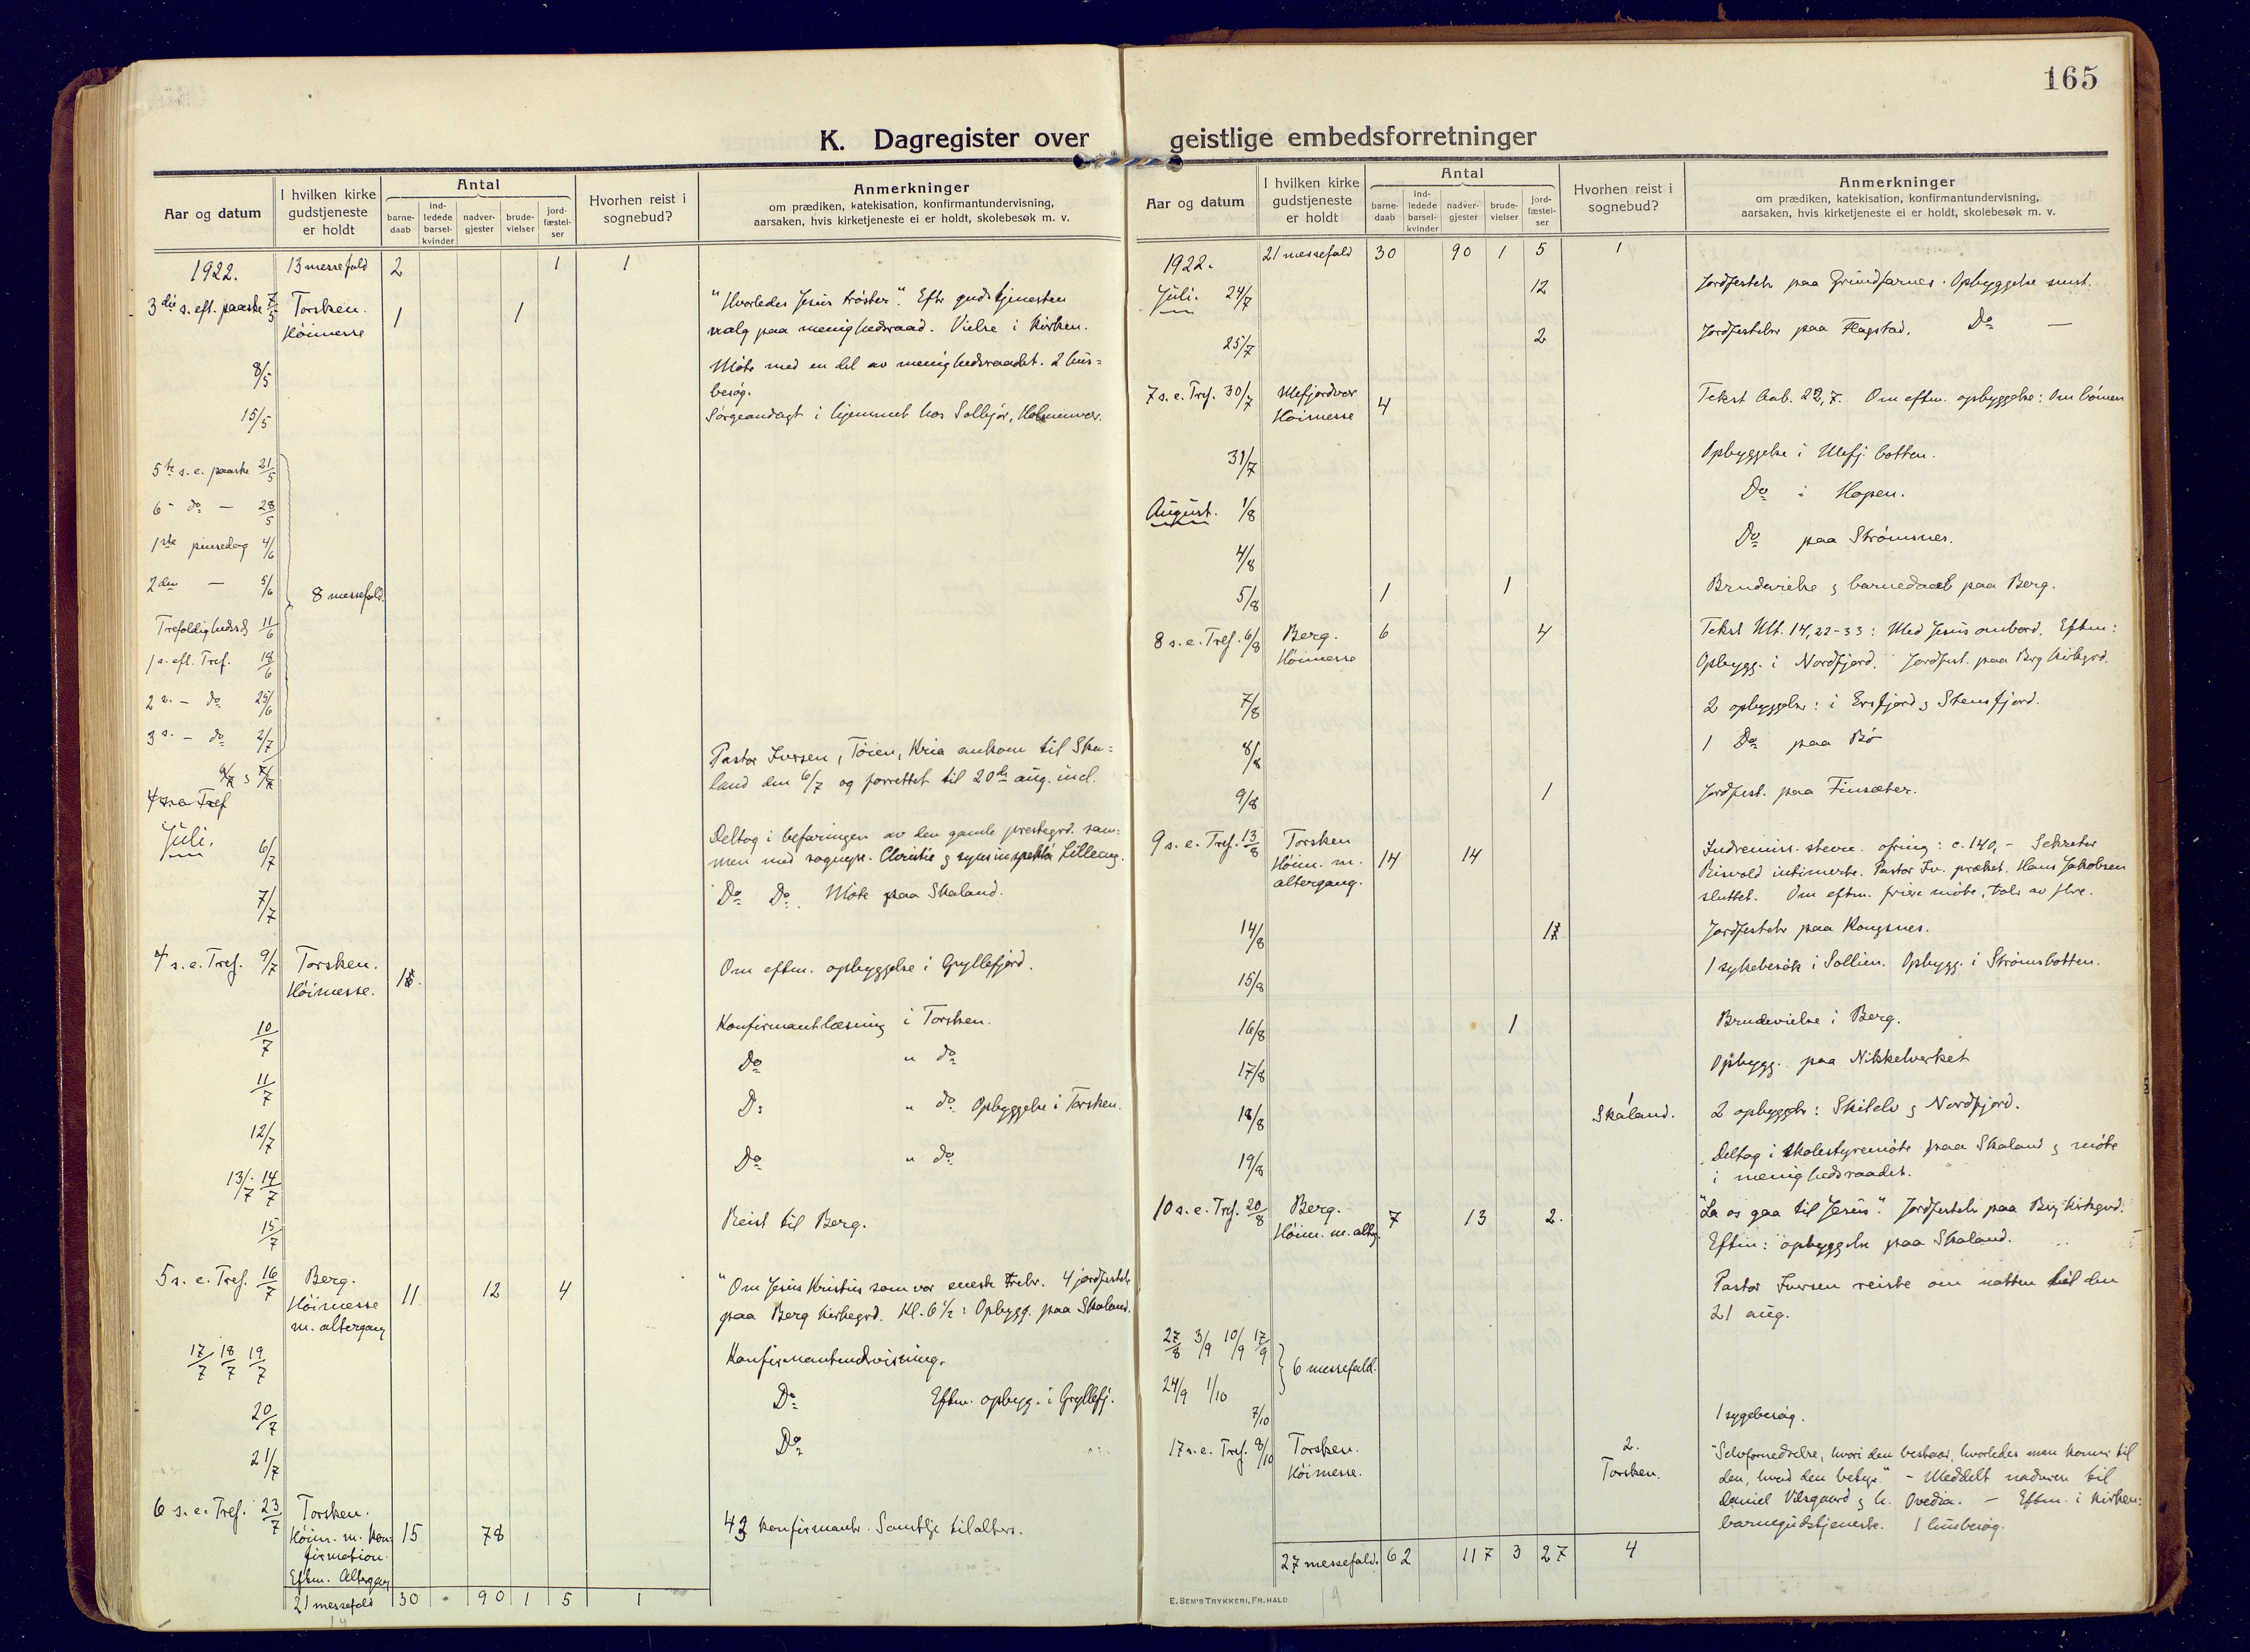 165
K. Dagregister over geistlige embedsforretninger
Aar og datum
I hvilken kirke
gudstjeneste
er holdt
Antal
barne-
daab
ind-
ledede
barsel-
kvinder
nadver-
gjester
brude-
vielser
jord-
fæstel-
ser
Hvorhen reist i
sognebud?
Anmerkninger
om prædiken, katekisation, konfirmantundervisning,
aarsaken, hvis kirketjeneste ei er holdt, skolebesøk m. v.
1922. 13 messefald 2 1 1
3die s. eft. paaske 7/5 Torsken. 1 1 "Hvorledes Jesus trøster". Eftr gudstjenesten
Höimesse valg paa menighedsraad. Vielse i kirken.
8/5 Möte med en del av menighedsraadet. 2 hus=
besøg.
15/5 Sörgeandagt i hjemmet hos Solbjör, Holmenvær.
5te s. e. paaske 21/5
6 - do - 28/5
1ste pinsedag 4/6
2den - 5/6 8 messefald.
Trefoldighedsds 11/6
1 s. eft. Tref. 18/6
2 s. - do 25/6
3 s. - do 2/7
Pastor Iversen, Töien, Kria ankom til Ska=
6/7 og 7/7 land den 6/7 og forrettet til 20de aug. incl.
4 s. e. Tref
Juli. 6/7 Deltog i befaringen av den gamle prestegrd. sam=
men med sognepr. Christie og synsinspektör Lilleeng.
7/7 Do Do. Möte paa Skaland.
4 s. e. Tref. 9/7 Torsken. Om eftm. opbyggelse i Gryllefjord.
Höimesse.
10/7 Konfirmantlæsning i Torsken.
11/7 Do " do
12/7 Do " do Opbyggelse i Torsken.
13/7 14/7 Do " do
15/7 Reist til Berg.
5 s. e. Tref. 16/7 Berg. 11 12 4 "Om Jesus Kristus som vor eneste frelsr. 4 jordfestelr
Höimesse paa Berg kirkegrd. Kl. 6 1/2: Opbygg. paa Skaland.
m. altergang
17/7 18/7 19/7 Konfirmantundervisning.
20/7 Do Eftm. opbyg. i Gryllefj.
21/7 Do
6 s. e. Tref. 23/7 Torsken.
Höim. m. kon= 15 78 43 konfirmantr. Samtlige tilalters.
firmation.
Eftm. Altergang
21 messefald 30 90 1 5 1
Aar og datum
I hvilken kirke
gudstjeneste
er holdt
Antal
barne-
daab
ind-
ledede
barsel-
kvinder
nadver-
gjester
brude-
vielser
jord-
fæstel-
ser
Hvorhen reist i
sognebud?
Anmerkninger
om prædiken, katekisation, konfirmantundervisning,
aarsaken, hvis kirketjeneste ei er holdt, skolebesøk m. v.
1922. 21 messefald 30 90 1 5 1
Juli. 24/7 12 Jordfestelr paa Grundfarnes. Opbyggelse smst.
25/7 2 Jordfestelser paa Flagstad. Do -
7 s. e. Tref. 30/7 Mefjordvær 4 Tekst Aab. 22,7. Om eftm. opbyggelse: Om bönnen
Höimesse
31/7 Opbyggelse i Mefj. botten.
August. 1/8 Do i Hopen.
4/8 Do paa Strömsnes.
5/8 1 1 Brudevielse og barnedaab paa Berg.
8 s. e. Tref. 6/8 Berg. 6 4 Tekst Mt. 14, 22-33: Med Jesus ombord. Eftm:
Höimesse Opbygg. i Nordfjord. Jordfest. paa Brg kirkgrd.
7/8 2 opbyggelsr: i Ersfjord og Stensfjord.
8/8 1 Do paa Bö
9/8 1 Jordfest. paa Finsæter.
9 s. e. Tref. 13/8 Torsken 14 14 Indremiss. stevne. ofring: c. 140,- Sekretær
Höim. m. Risvold intimerte. Pastor Iv. præket. Hans Jakobsen
altergang. sluttet. Om eftm. friere möte, tale av flre.
14/8 Jordfestelr paa Kongsnes.
15/8 1 sykebesök i Sollien. Opbygg. i Strömsbotten.
16/8 1 Brudevielse i Berg.
17/8 Opbygg. paa Nikkelverket
18/8 1 Skaland. 2 opbyggelr: Skitelv og Nordfjord.
19/8 Deltog i skolestyremöte paa Skaland og möte
i menighedsraadet.
10 s. e. Tref. 20/8 Berg. 7 13 2. "La os gaa til Jesus". Jordfestelr paa Brg kirkegrd.
Höim. m. altg. Eftm: opbyggelse paa Skaland.
Pastor Iversen reiste om natten til den
21 aug.
27/8 3/9 10/9 17/9 6 messefald.
24/9 1/10
7/10 1 sygebesøg.
17 s. e. Tref. 8/10 Torsken. 2. "Selvfornedrelse, hvori den bestaar, hvorledes man kommer til
Höimesse. Torsken. den, hvad den betyr." - Meddelt nadveren til
Daniel Vilsgaard og h. Ovedia. - Eftm. i kirken:
barnegudstjeneste. 1 husbesøg.
27 messefald. 62 117 3 27 4
E. SEM'S TRYKKERI, FR. HALD
19